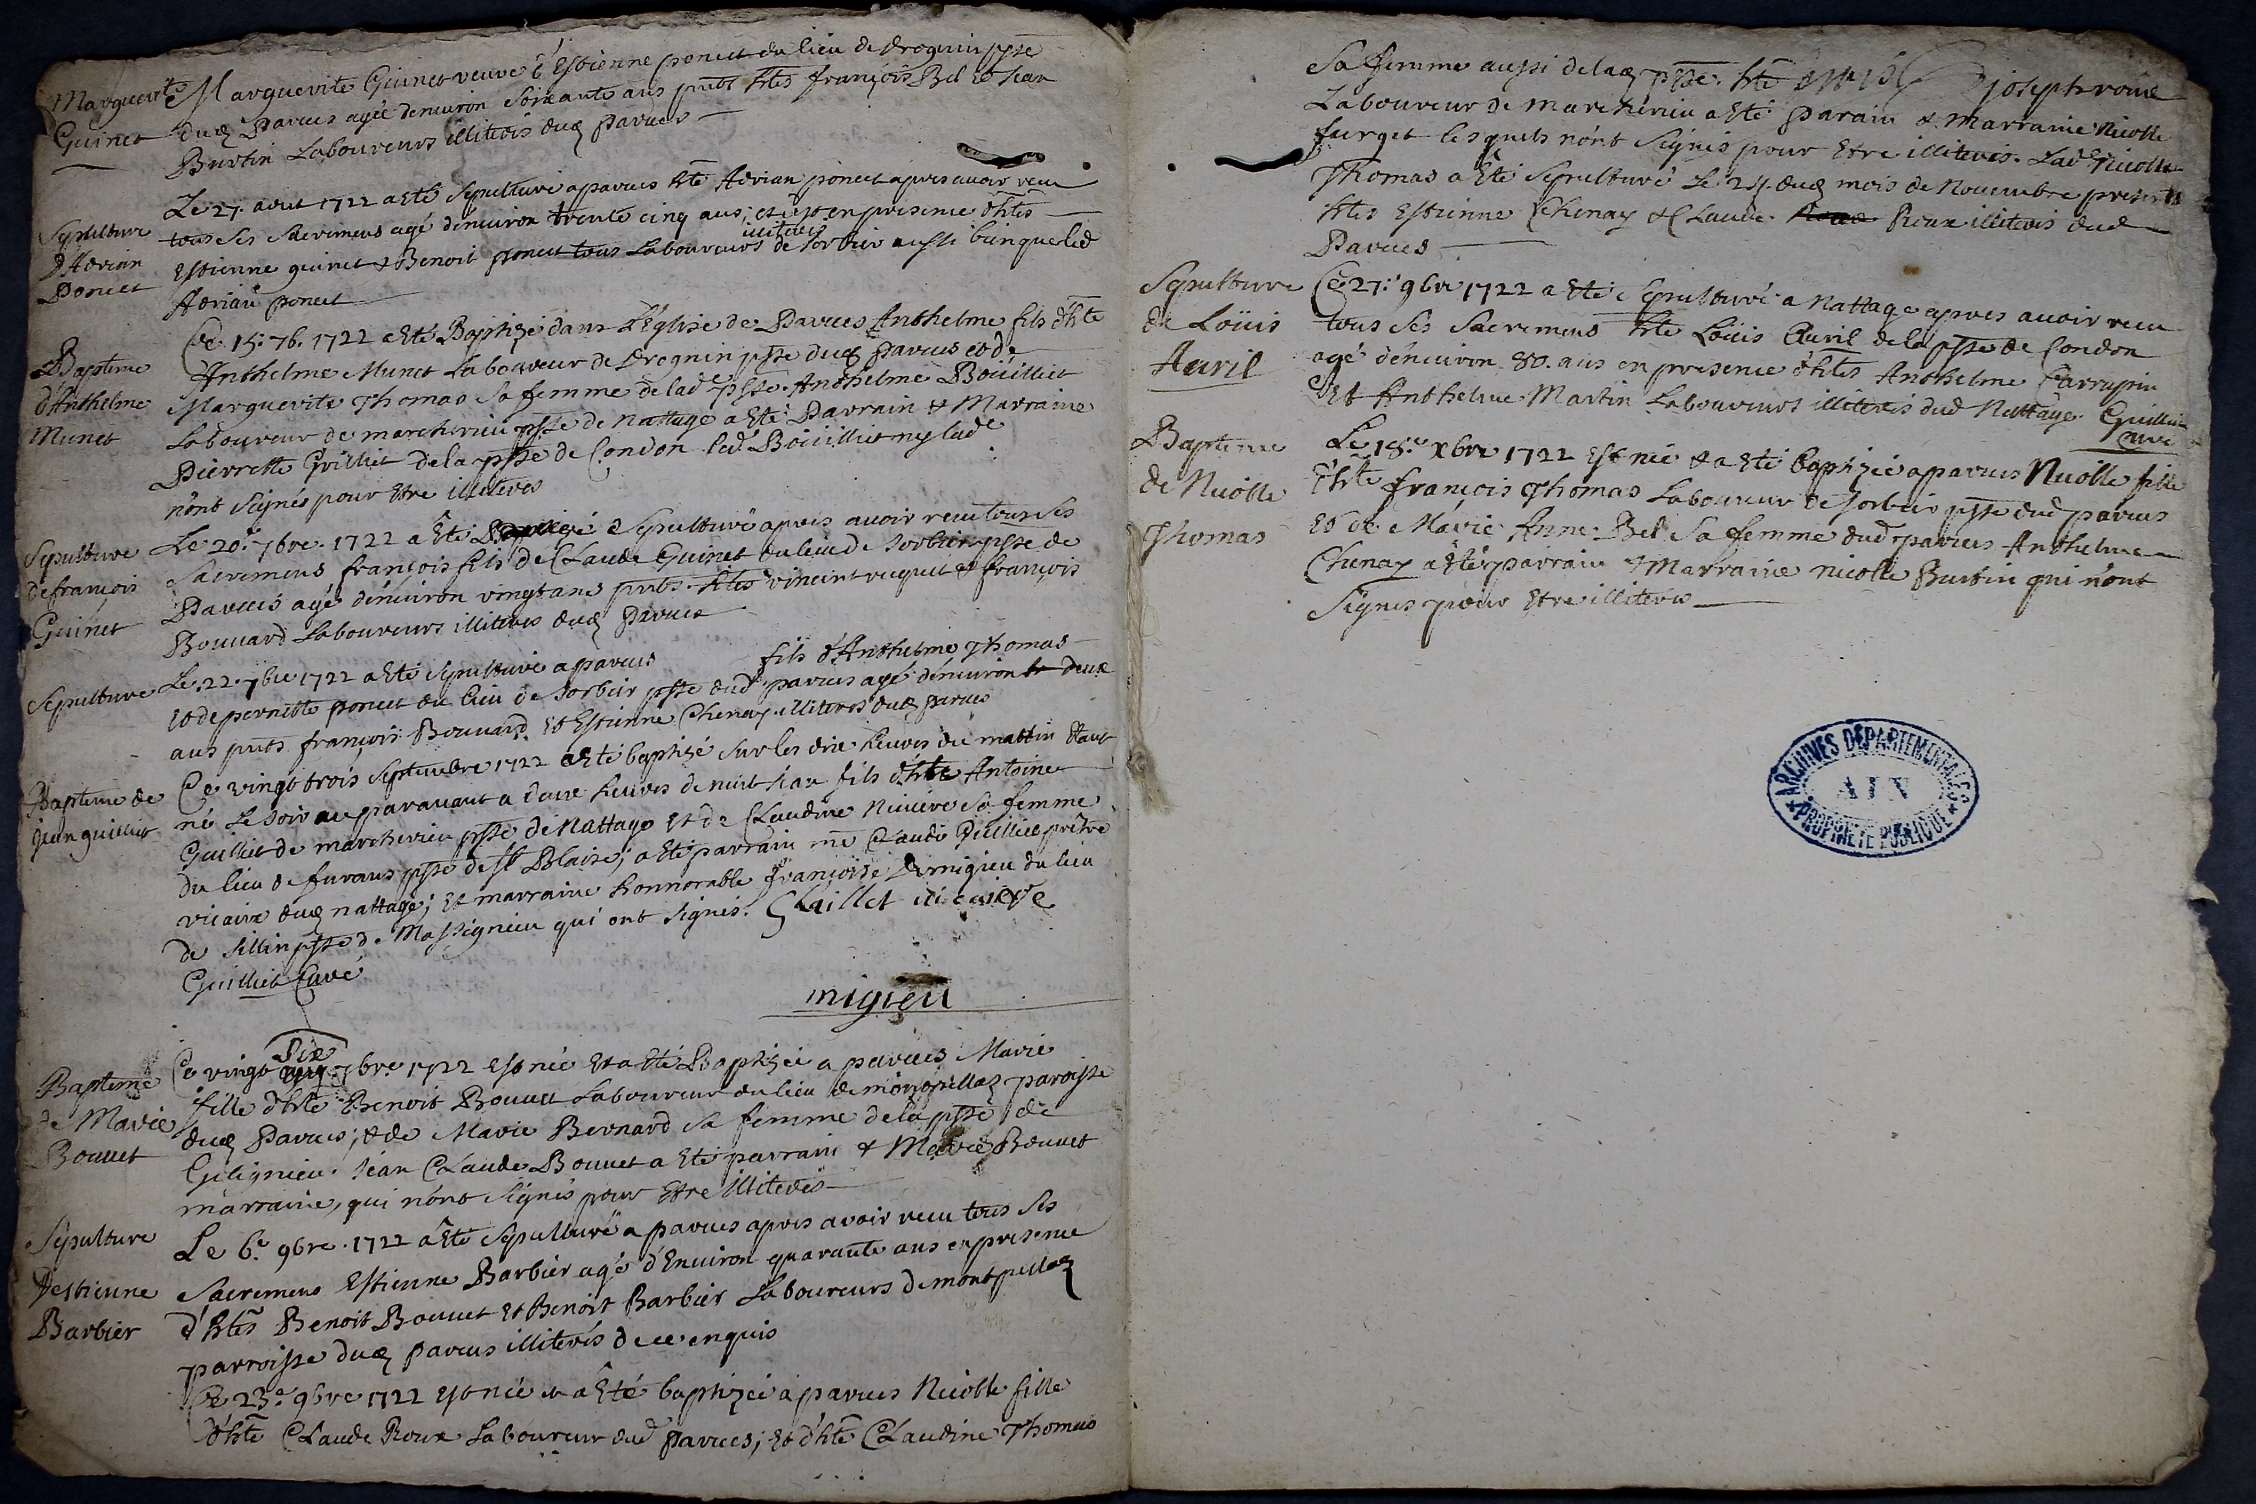 Marguerite
Guinet
Marguerite Guinet veuve d'Estienne poncet du lieu de Brognin psse
dud Parues agée denuiron soixante ans pnts htes françois Bel et Jean
Burtin Laboureurs illiterés dud parues
Sepulture
D'Adrian
Poncet
Le 27. aout 1722 a esté sepulturé a parues hte Adrian poncet apres auoir receu
tous ses sacremens agé d'enuiron trente cinq ans; et ce en presence d'htes
Estienne guinet & Benoit poncet tous Laboureurs illiterés de sorbier aussi bien que led
Adrian poncet
Bapteme
d'Anthelme
Munet
Ce 15. 7b. 1722 a Eté Baptizé dans L'Eglise de Parues Anthelme fils d'hte
Anthelme Munet Laboureur de Brognin psse dud Parues et de
Marguerite Thomas sa femme de lade psse. Anthelme Boüilliet
Laboureur de marcherieu psse de Nattage a Eté Parrain & Marraine
Pierrette Guilliet de la psse de Condon led Boüilliet ny lade
n'ont signés pour Etre illiterés
Sepulture
de françois
Guinet
Le 20e 7bre 1722 a Eté sepulturé apres auoir receu tous ses
sacremens françois fils de Claude Guinet du lieu de sorbier psse de
Parues agé d'enuiron vingt ans pnts. htes vincent ruquet & françois
Bouuard Laboureurs illiterés dud Parues
Sepulture
Le 22 7bre 1722 a Eté sepulturé a parues fils d'Anthelme Thomas
et de pernette poncet du lieu de sorbier psse dud parues agé d'enuiron deux
ans pnts françois Bouuard et Estienne Chenay illiterés dud parues
Bapteme de
Jean guilliet
Ce vingt trois septembre 1722 a Eté baptizé sur les dix heures du mattin Etant
né Le soir auparauant a douze heures de nuit Jean fils d'hte Antoine
Guilliet de marcherieu psse de Nattage et de Claudine Niuiere sa femme
du lieu de furans psse de St Blaise; a Eté parrain me Claude Guilliet prêtre
vicaire dud nattage; et marraine honnorable françoise de migieu du lieu
de sillin psse de Massignieu qui ont signés. Guillet vicaire
Guilliet Curé
migieu
Bapteme
de Marie
Bouuet
Ce vingt six 7bre 1722 est née et a Eté Baptizée a parues Marie
fille d'hte Benoit Bouuet Laboureur du lieu de montpellaz paroisse
dud Parues; & de Marie Bernard sa femme de la psse de
Gelignieu. Jean Claude Bouuet a Eté parrain & Marie Bouuet
marraine, qui n'ont signés pour Etre illiterés
Sepulture
d'estienne
Barbier
Le 6e 9bre. 1722 a Eté sepulturé a parues apres avoir receu tous ses
sacremens Estienne Barbier agé d'Enuiron quarante ans en presence
d'htes Benoit Bouuet et Benoit Barbier Laboureurs de montpellaz
parroisse dud parues illiterés de ce enquis
Ce 23e 9bre 1722 est née & a Eté baptizée a parues Nicolle fille
d'hte Claude Roux Laboureur dud parues; et d'hte Claudine Thomas
sa femme aussi de lad psse. hte joseph
Laboureur de marcherieu a Eté parain & marraine Nicolle
furget lesquels n'ont signés pour Etre illiterés. Lade Nicolle
Thomas a Eté sepulturé Le 24. dud mois de Nouembre presents
htes Estienne Chenay & Claude Roux illiterés dud
Parues
Sepulture
de Loüis
Auril
Ce 27e 9bre 1722 a Eté sepulturé a Nattage apres auoir receu
tous ses sacremens hte Loüis Auril de la psse de Condon
agé d'enuiron 80. ans en presence d'htes Anthelme Carrupin
et Anthelme Martin Laboureurs illiterés dud Nattage. Guilliet
Curé
Bapteme
de Nicolle
Thomas
Le 18e Xbre 1722 Est née & a Eté baptizée a parues Nicolle fille
d'hte françois Thomas Laboureur de sorbier psse dud parues
Et de Marie Anne Bel sa femme dud parues Anthelme
Chenay a Eté parrain & Marraine nicolle Burtin qui n'ont
signés pour Etre illiterés
ARCHIVES DÉPARTEMENTALES
AIN
PROPRIÉTÉ PUBLIQUE